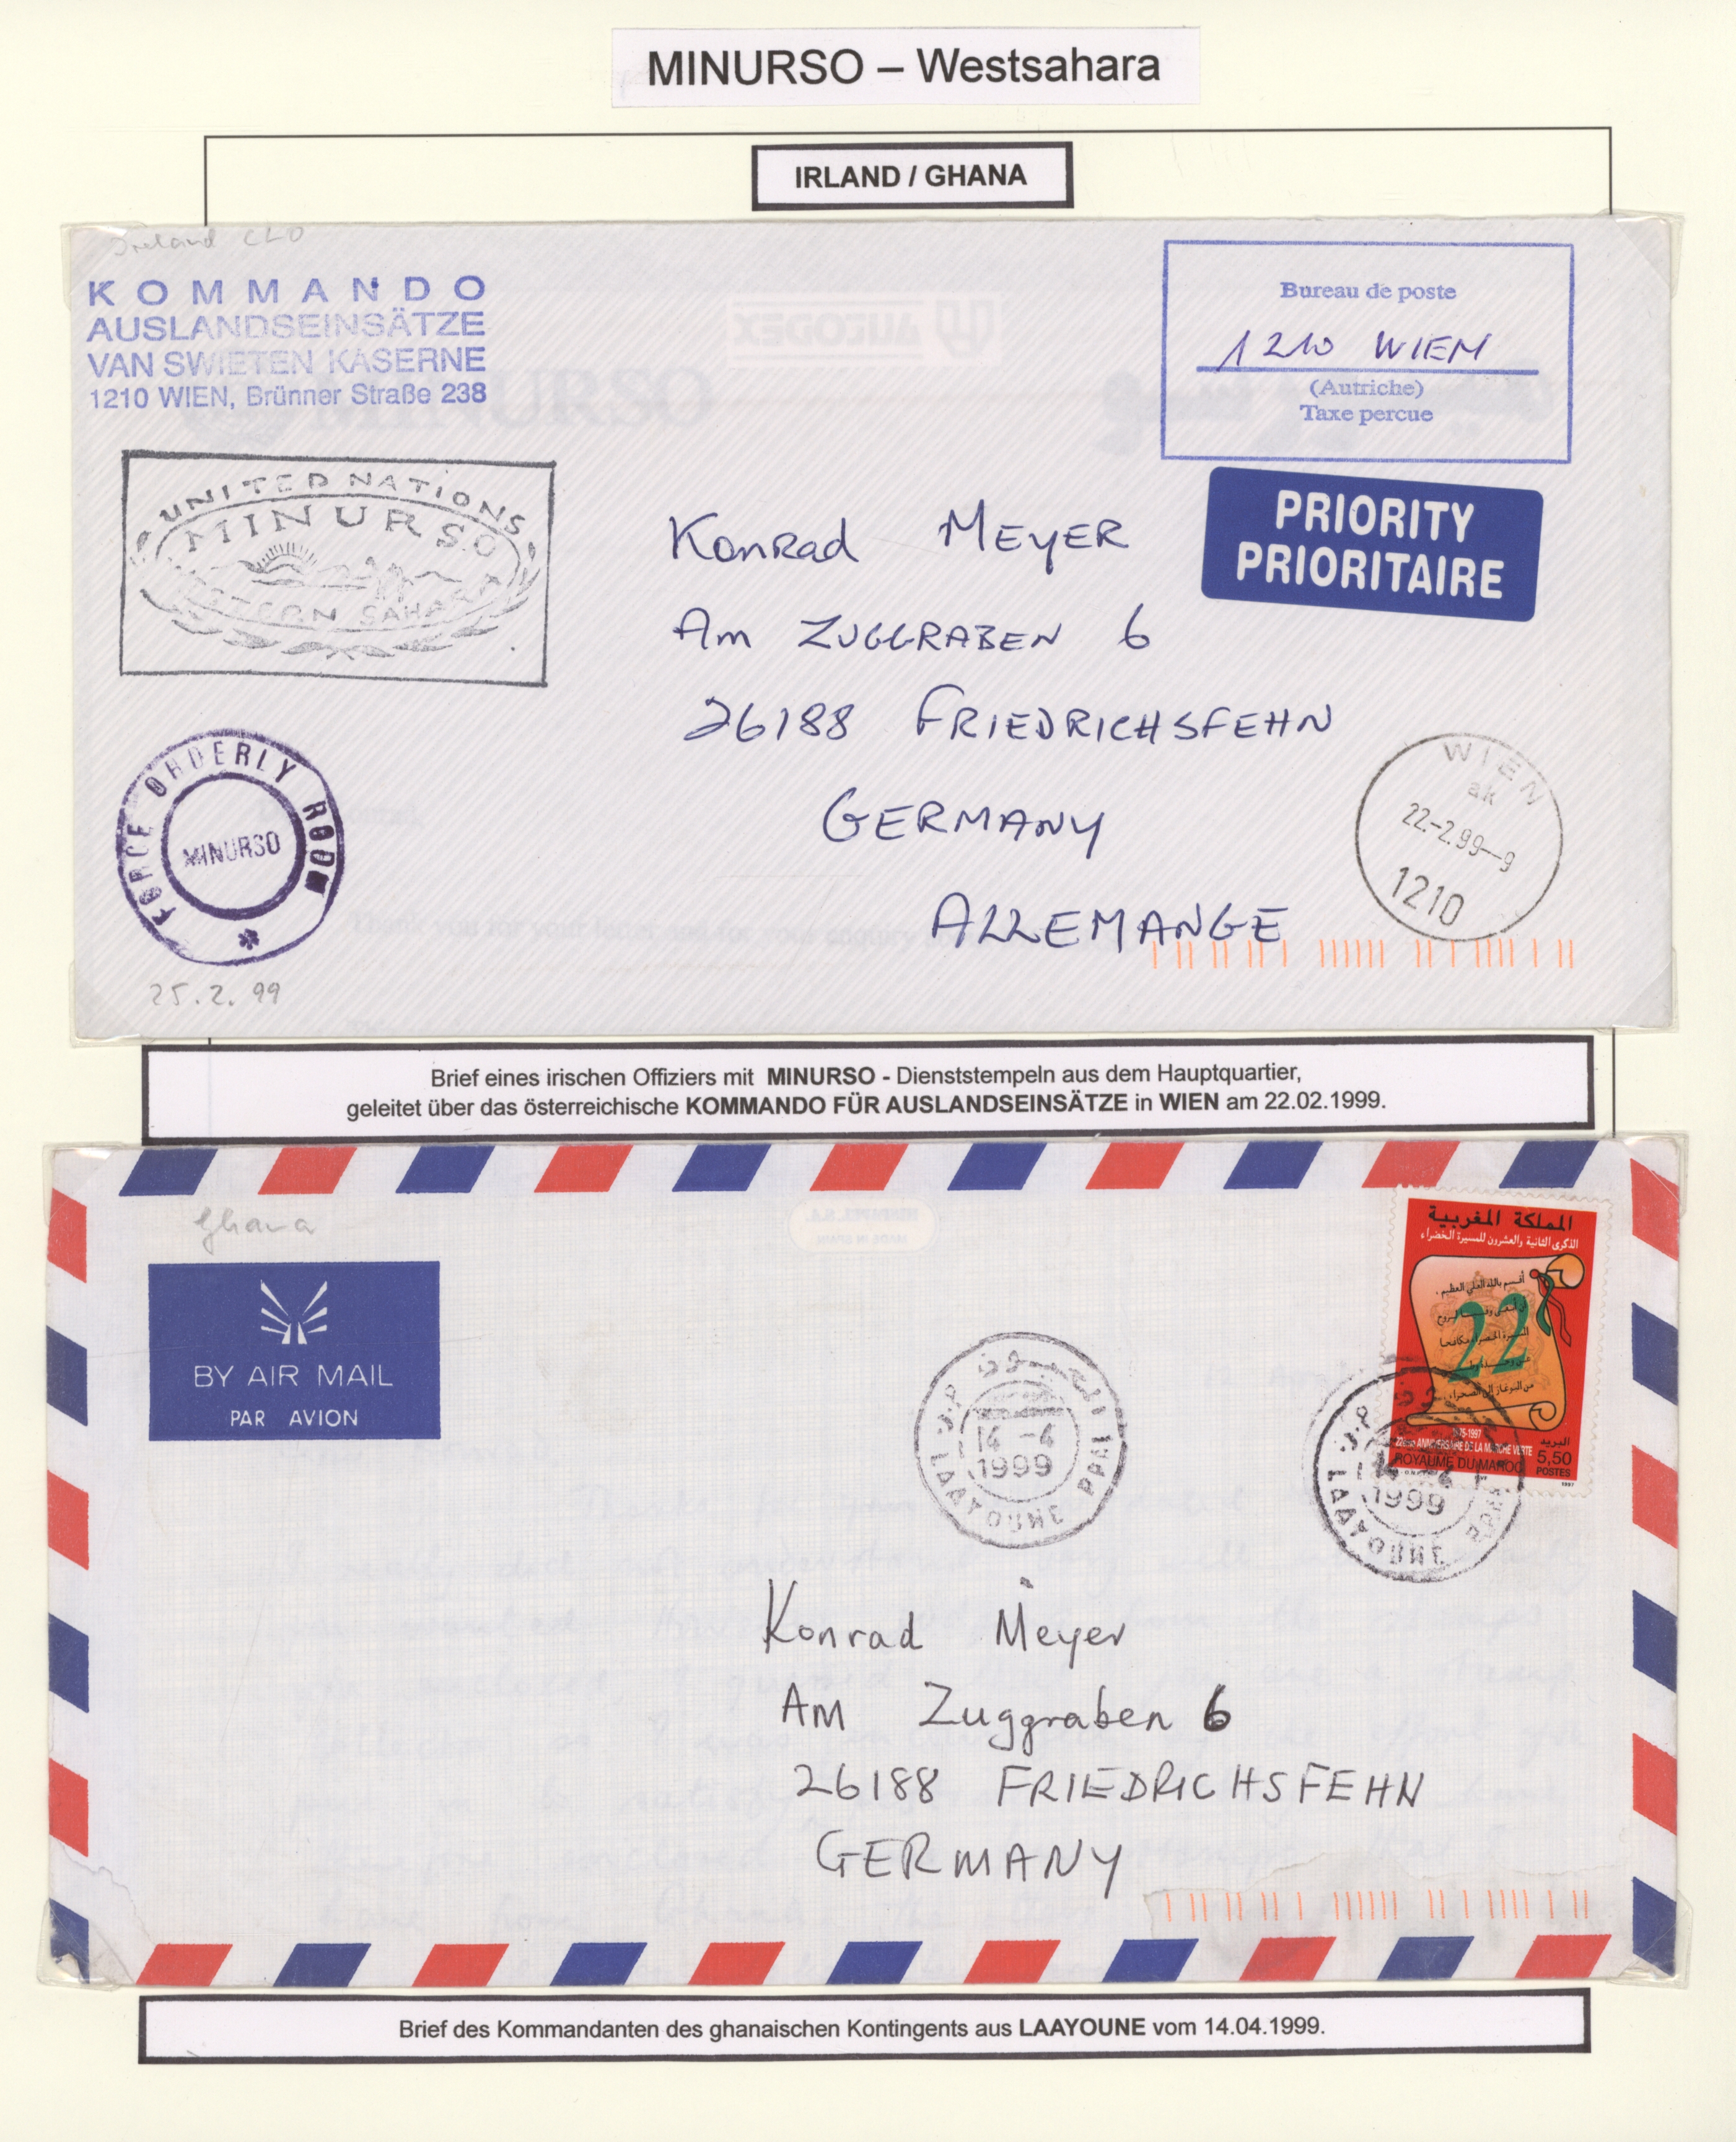 MINURSO – Westsahara
IRLAND / GHANA
Ireland CLO
KOMMANDO
AUSLANDSEINSÄTZE
VAN SWIETEN KASERNE
1210 WIEN, Brünner Straße 238
Bureau de poste
1210 WIEN
(Autriche)
Taxe percue
PRIORITY
PRIORITAIRE
UNITED NATIONS
MINURSO
WESTERN SAHARA
Konrad MEYER
Am ZUGGRABEN 6
26188 FRIEDRICHSFEHN
GERMANY
ALLEMANGE
FORCE ORDERLY ROOM
MINURSO
25.2.99
WIEN
ak
22-2.99--9
1210
Brief eines irischen Offiziers mit MINURSO - Dienststempeln aus dem Hauptquartier,
geleitet über das österreichische KOMMANDO FÜR AUSLANDSEINSÄTZE in WIEN am 22.02.1999.
Ghana
BY AIR MAIL
PAR AVION
المملكة المغربية
الذكرى الثانية والعشرون للمسيرة الخضراء
أقسم بالله العلي العظيم
22
1975-1997
22ème ANNIVERSAIRE DE LA MARCHE VERTE
ROYAUME DU MAROC
البريد
5,50
POSTES
1997
العيون
14 -4
1999
LAAYOUNE PPAL
14 -4
1999
LAAYOUNE PPAL
Konrad Meyer
Am Zuggraben 6
26188 FRIEDRICHSFEHN
GERMANY
Brief des Kommandanten des ghanaischen Kontingents aus LAAYOUNE vom 14.04.1999.